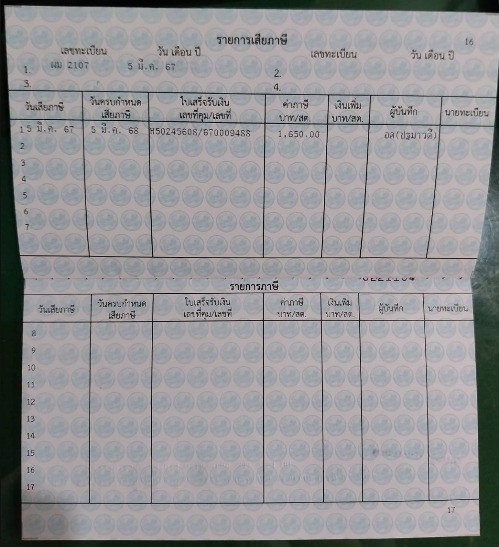 รายการเสียภาษี 16
เลขทะเบียน วัน เดือน ปี เลขทะเบียน วัน เดือน ปี
1. ผม 2107 5 มี.ค. 67 2.
3. 4.
วันเสียภาษี วันครบกำหนด เสียภาษี ใบเสร็จรับเงิน เลขที่คุม/เลขที่ ค่าภาษี บาท/สต. เงินเพิ่ม บาท/สต. ผู้บันทึก นายทะเบียน
1 5 มี.ค. 67 5 มี.ค. 68 H50245608/670009488 1,650.00 อส(ปฐมาวดี)
2
3
4
5
6
7
รายการภาษี
วันเสียภาษี วันครบกำหนด เสียภาษี ใบเสร็จรับเงิน เลขที่คุม/เลขที่ ค่าภาษี บาท/สต. เงินเพิ่ม บาท/สต. ผู้บันทึก นายทะเบียน
8
9
10
11
12
13
14
15
16
17
17